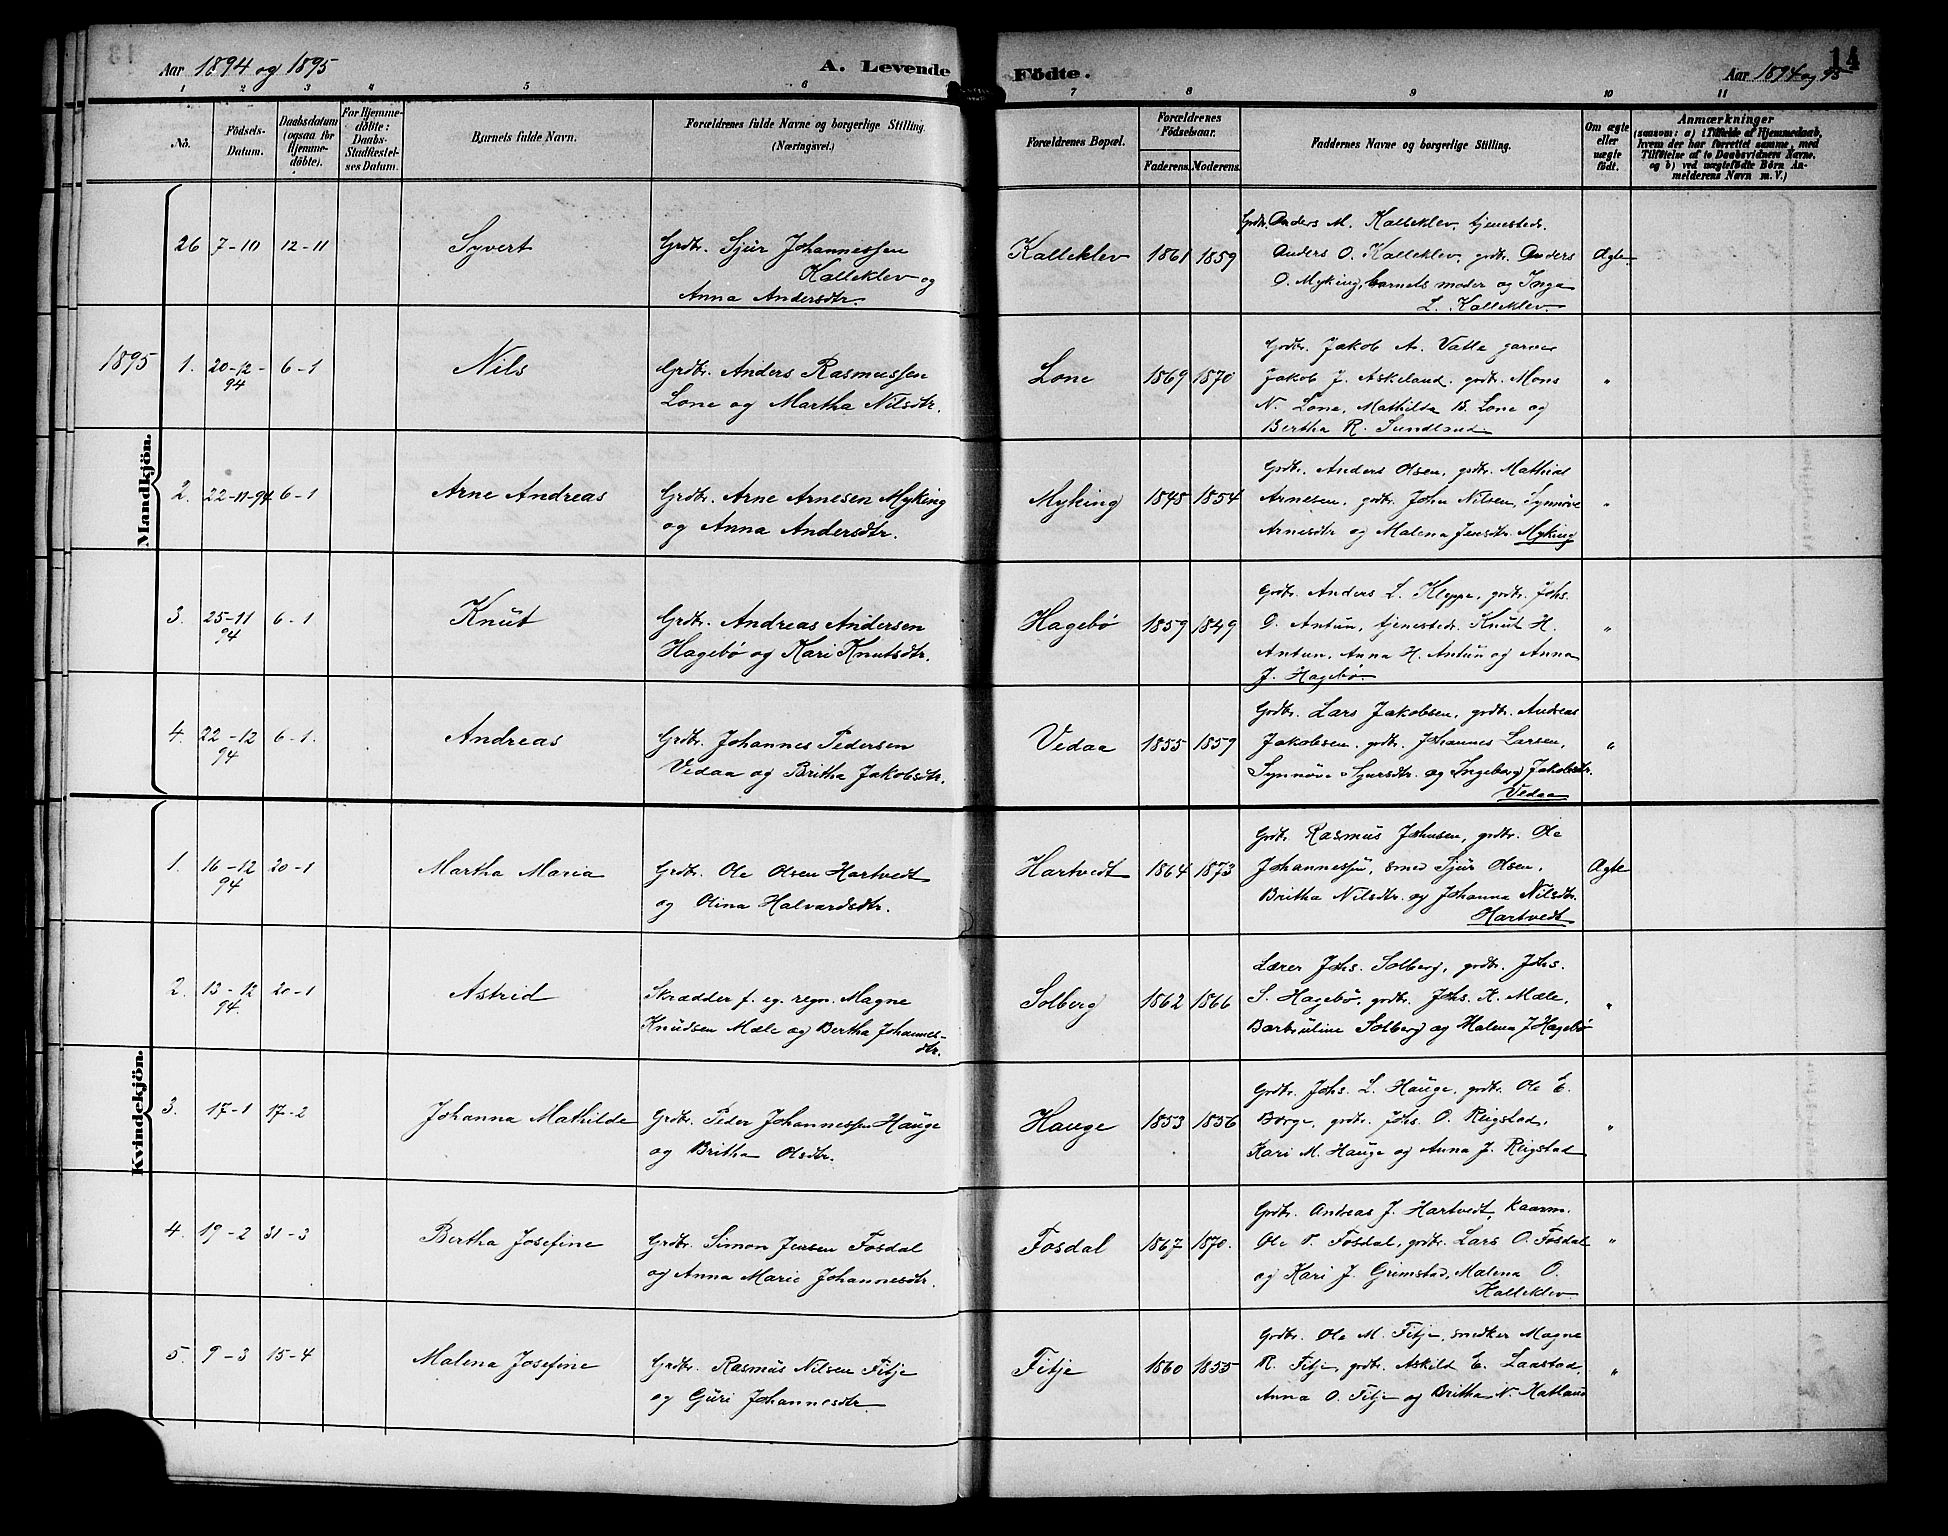 Aar 1894 og 1895
A. Levende Födte.
Aar 1894 og 95
14
1 2 3 4 5 6 7 8 9 10 11
No.
Födsels-Datum.
Daabsdatum (ogsaa for Hjemmedöbte).
For Hjemmedöbte: Daabs-Stadfæstelses Datum.
Barnets fulde Navn.
Forældrenes fulde Navne og borgerlige Stilling.
(Næringsvei.)
Forældrenes Bopæl.
Forældrenes Födselsaar.
Faderens. Moderens.
Faddernes Navne og borgerlige Stilling.
Om ægte eller uægte födt.
Anmærkninger
(saasom: a) i Tilfælde af Hjemmedaab, hvem der har forrettet samme, med Tilföielse af to Daabsvidners Navne, og b) ved uægtefödte Börn Anmelderens Navn m. V.)
Mandkjön.
26 7-10 12-11 Syvert
Grdbr. Sjur Johannessen
Kalleklev og
Anna Andersdtr.
Kalleklev 1861 1859
Grdbr. Anders M. Kalleklev, tjenestedr.
Anders O. Kalleklev, grdbr. Anders
O. Myking, barnets moder og Inga
L. Kalleklev.
Ægte
1895
1. 20-12-94 6-1 Nils
Grdbr. Anders Rasmussen
Lone og Martha Nilsdtr.
Lone 1869 1870
Grdbr. Jakob A. Valle garver
Jakob J. Askeland, grdbr. Mons
N. Lone, Mathilda B. Lone og
Bertha R. Sundland.
"
2. 22-11-94 6-1 Arne Andreas
Grdbr. Arne Arnesen Myking
og Anna Andersdtr.
Myking 1845 1854
Grdbr. Anders Olsen, grdbr. Mathias
Arnesen, grdbr. John Nilsen, Synnöve
Arnesdtr og Malena Jensdtr. Myking
"
3. 25-11 94 6-1 Knut
Grdbr. Andreas Andersen
Hagebö og Kari Knutsdtr.
Hagebö 1859 1849
Grdbr. Anders L. Kleppe, grdbr. Johs.
O. Antun, tjenestedr. Knut H.
Antun, Anna H. Antun og Anna
J. Hagebö.
"
4. 22-12 94 6-1. Andreas
Grdbr. Johannes Pedersen
Vedaa og Britha Jakobsdtr.
Vedaa 1855 1859
Grdbr. Lars Jakobsen, grdbr. Andreas
Jakobsen, grdbr. Johannes Larsen,
Synnöve Sjursdtr. og Ingeborg Jakobsdtr.
Vedaa
"
Kvindekjön.
1. 16-12 94 20-1 Martha Maria
Grdbr. Ole Olsen Hartvedt
og Olina Halvardsdtr.
Hartvedt 1864 1873
Grdbr. Rasmus Johnsen, grdbr. Ole
Johannessen, smed Sjur Olsen,
Britha Nilsdtr. og Johanna Nilsdtr.
Hartvedt
Ægte
2. 13-12 94. 20-1 Astrid
Skrædder f. eg. regn. Magne
Knudsen Mæle og Bertha Johannes-
dtr.
Solberg 1862 1866
Lærer Johs. Solberg, grdbr. Johs.
S. Hagebö, grdbr. Johs. K. Mæle,
Barbruline Solberg og Malena J Hagebö
"
3. 17-1 17-2 Johanna Mathilde
Grdbr. Peder Johannessen Hauge
og Britha Olsdtr.
Hauge 1853 1856
Grdbr. Johs. L. Hauge, grdbr. Ole E.
Borge, grdbr. Johs. O. Reigstad,
Kari M. Hauge og Anna J. Reigstad
"
4. 19-2 31-3 Bertha Josefine
Grdbr. Simon Jensen Fosdal
og Anna Marie Johannesdtr.
Fosdal 1867 1870.
Grdbr. Andreas J. Hartvedt, kaarm.
Ole P. Fosdal, grdbr. Lars O. Fosdal
og Kari J. Grimstad, Malena O.
Kalleklev.
"
5. 9-3 15-4 Malena Josefine
Grdbr. Rasmus Nilsen Fitje
og Guri Johannesdtr
Fitje 1860 1855
Grdbr. Ole M. Fitje, snedker Magne
R. Fitje, grdbr. Askild E. Laastad,
Anna O. Fitje og Britha N. Hatland
"